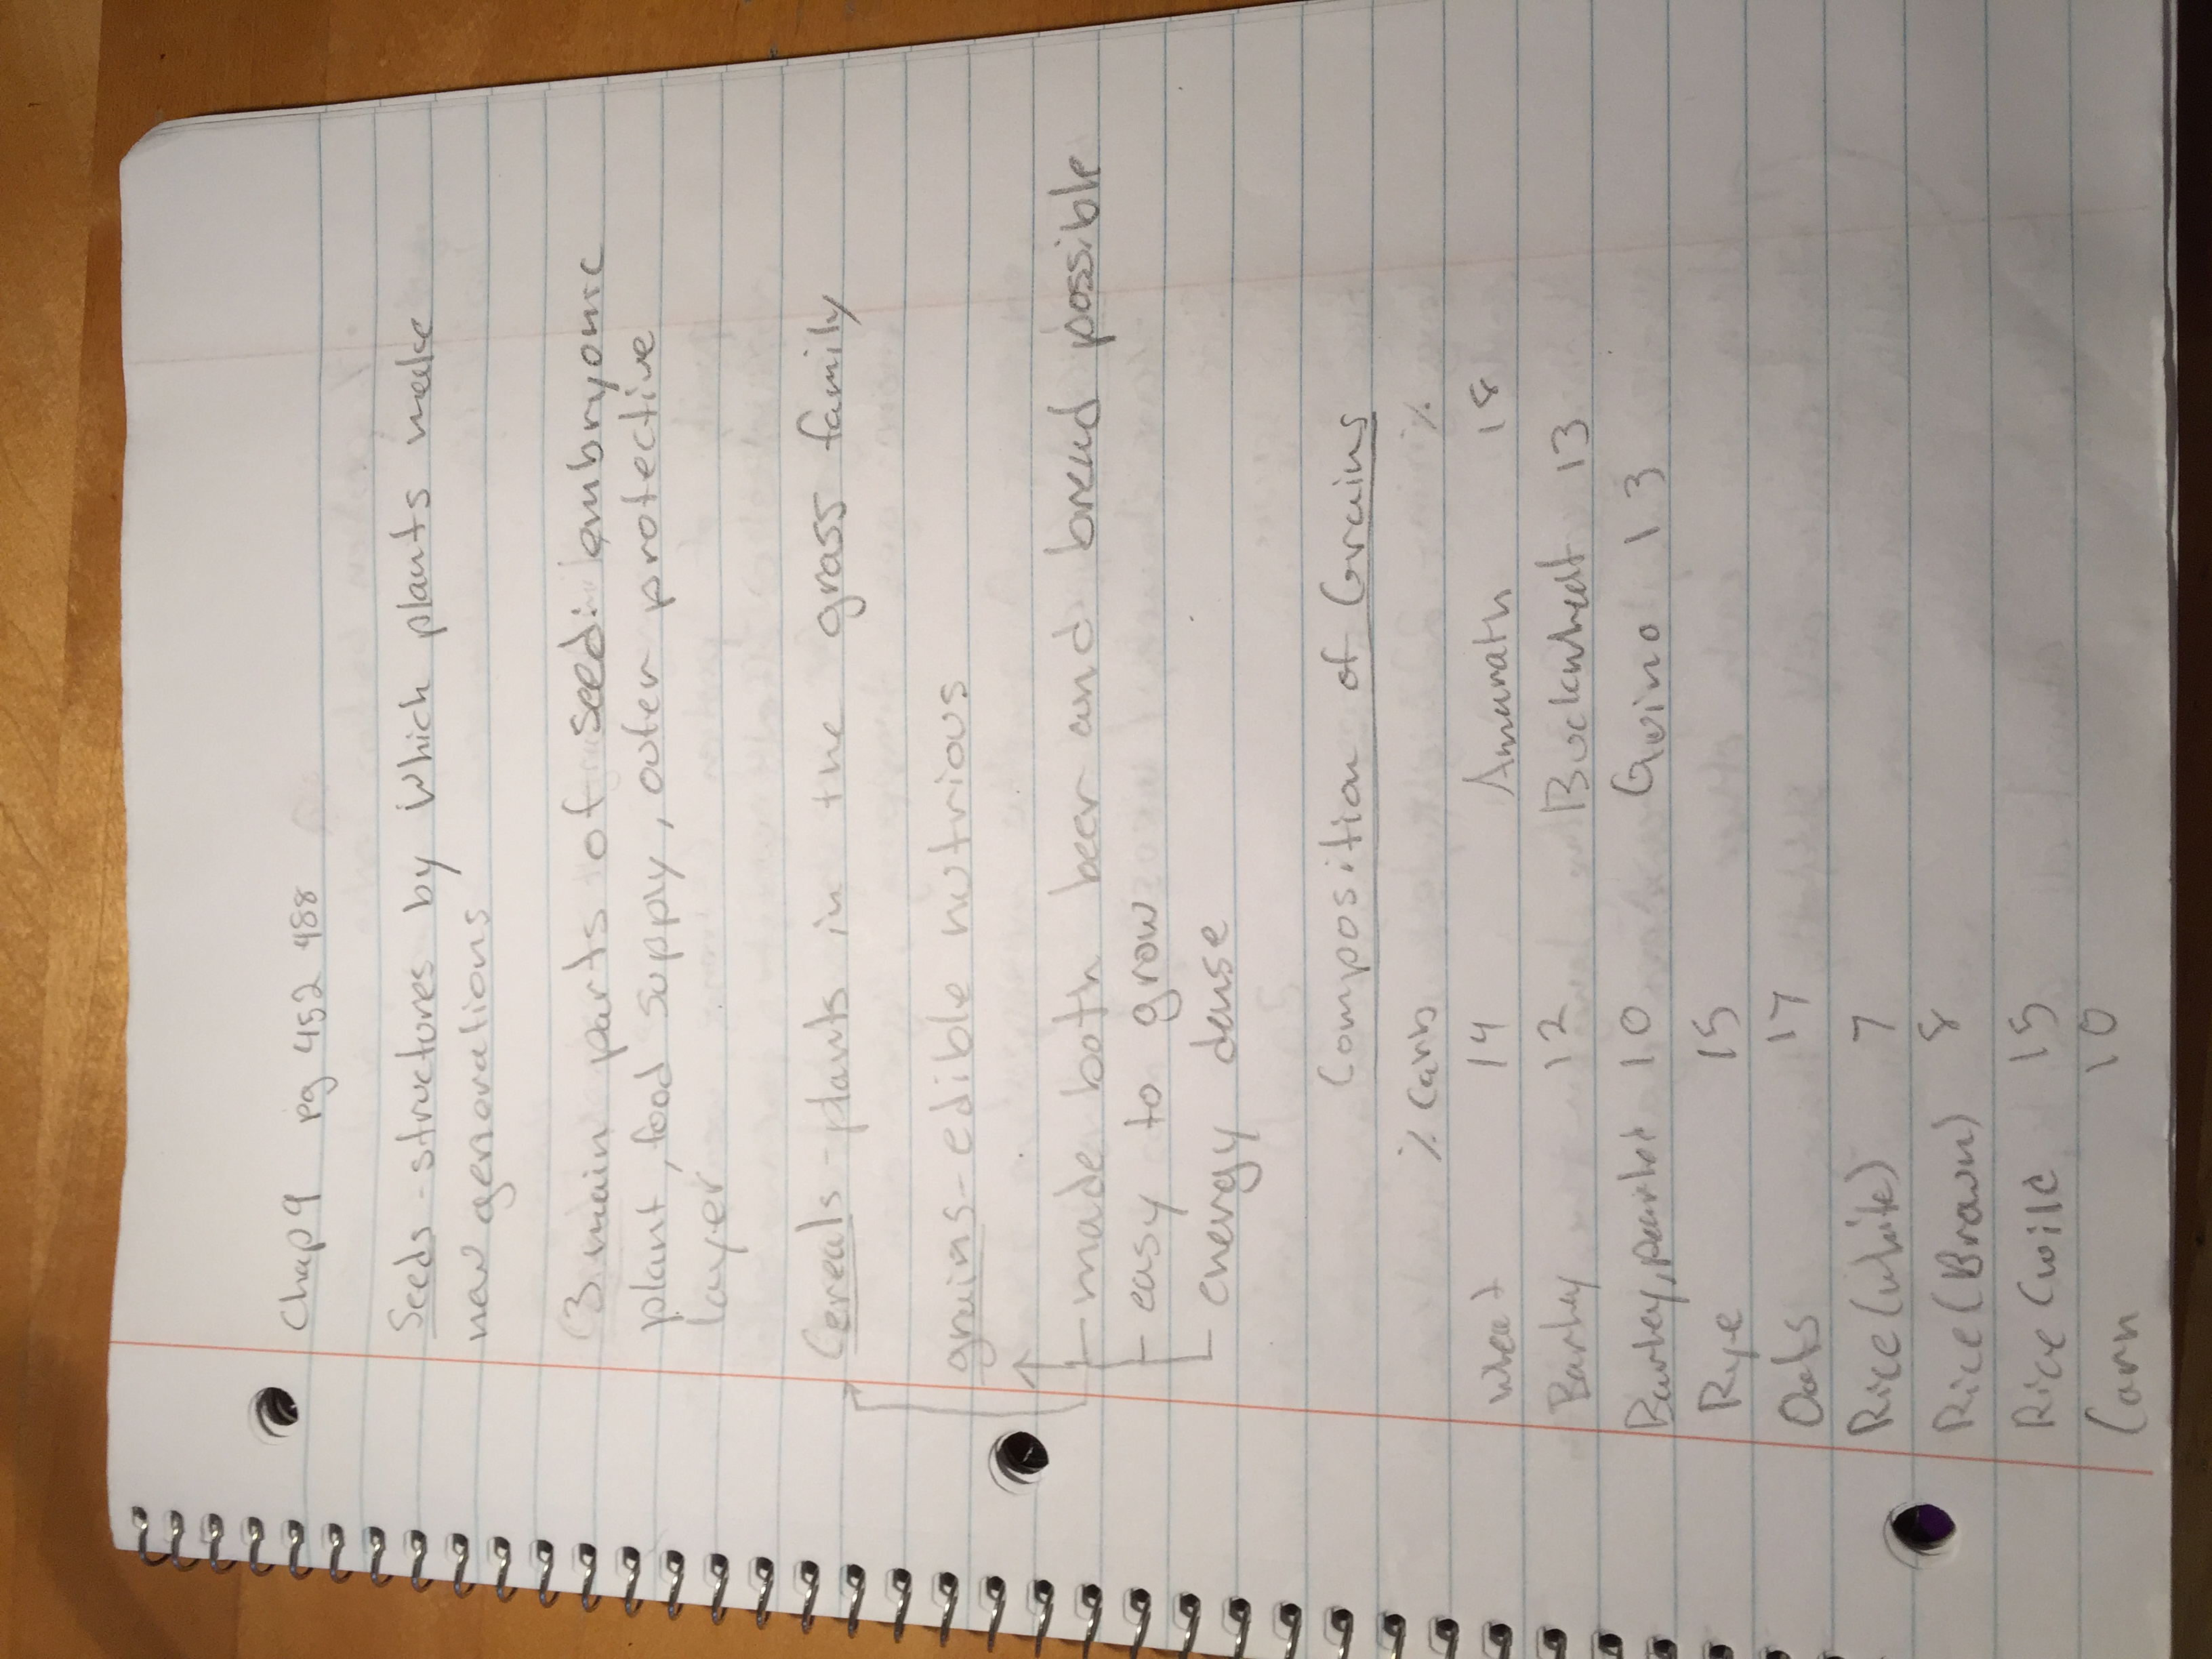 Chap 9 pg 452 488
Seeds - structures by which plants make
new generations
3 main parts of seed: embryonic
plant, food supply, outer protective
layer
Cereals - plants in the grass family
grains - edible nutrious
- made both beer and bread possible
- easy to grow
- energy dense
Composition of Grains
% Carbs %
Wheat 14 Amaranth 18
Barley 12 Buckwheat 13
Barley, 10 Quino 13
Rye 15
Oats 17
Rice (white) 7
Rice (Brown) 8
Rice (wild 15
Corn 10